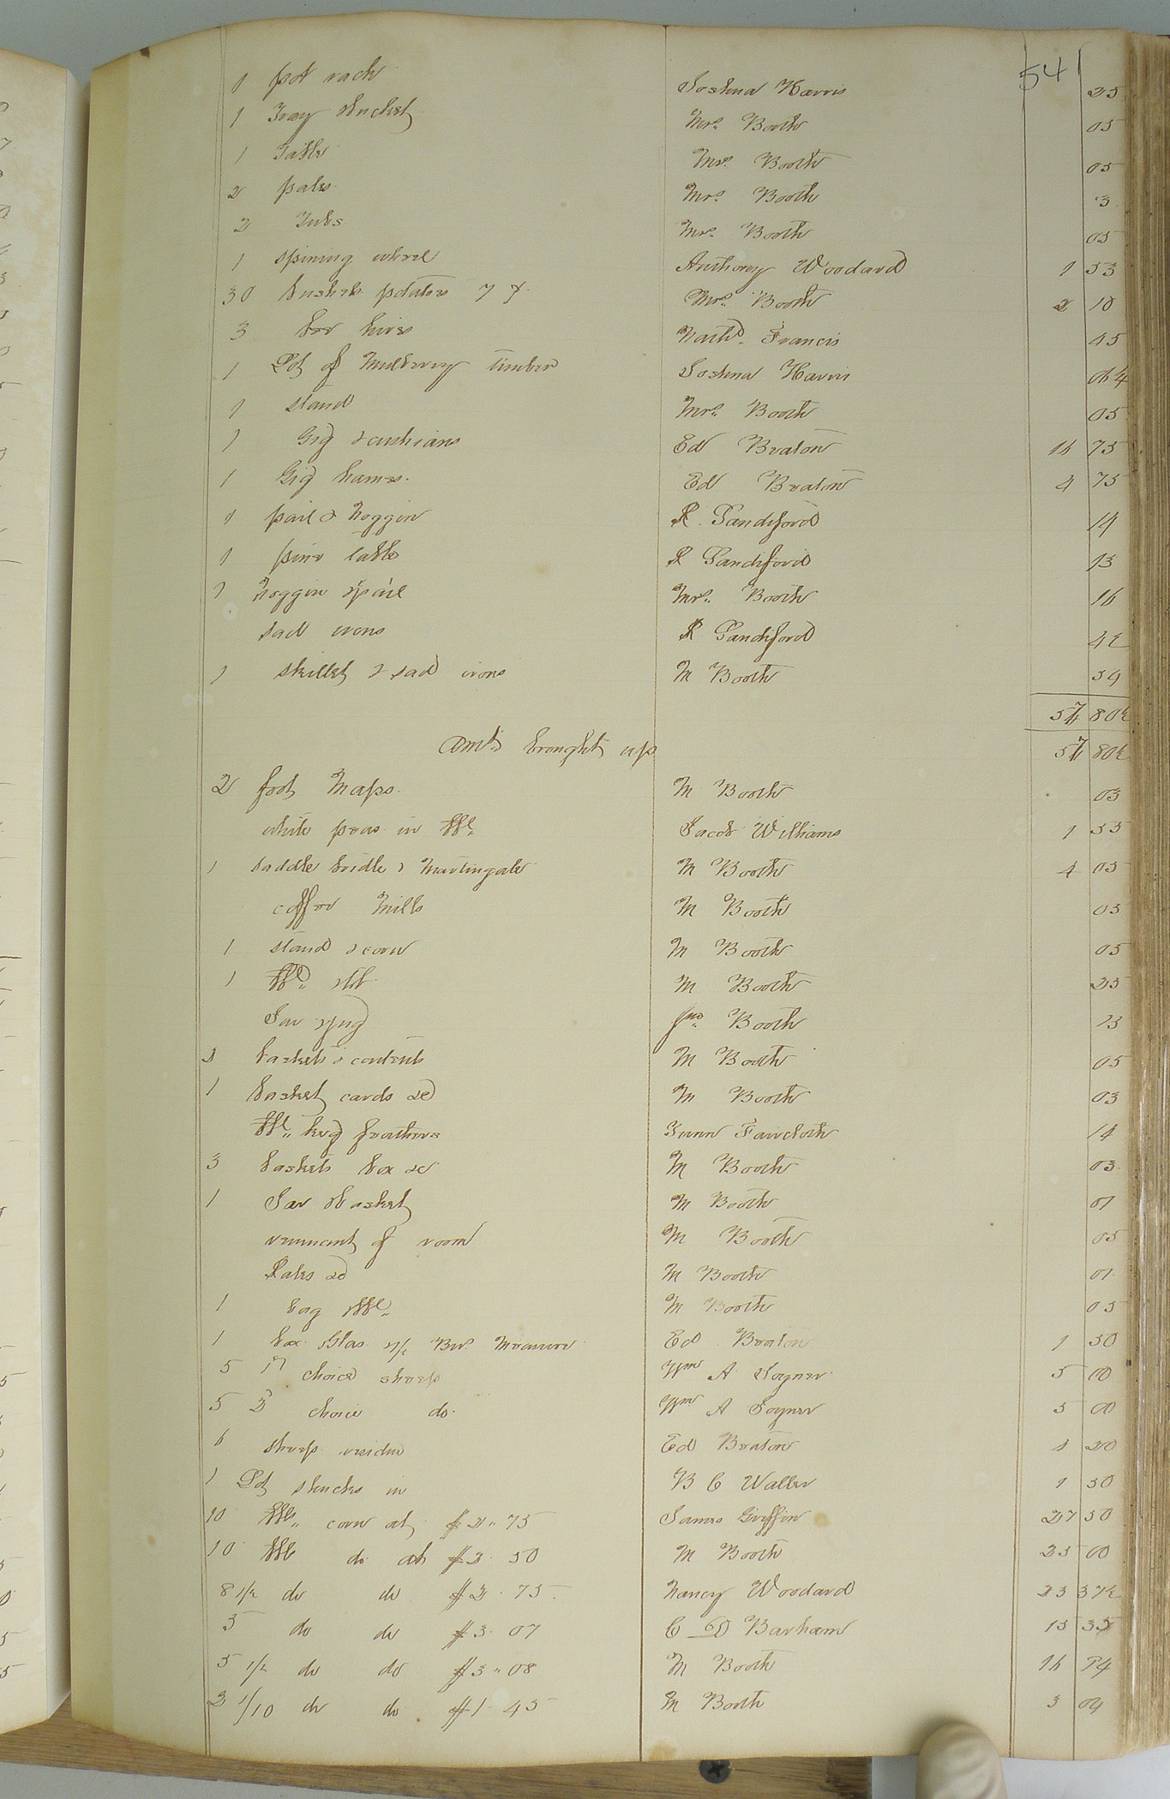 541
1 pot rack Joshua Harris 25
1 Tray & bucket Mrs Booth 05
1 Table Mrs Booth 05
2 pales Mrs Booth 3
2 Tubs Mrs Booth 05
1 spining wheel Anthony Woodard 1 53
30 bushels potatoes Mrs Booth 2 10
3 bee hives Nathl Francis 45
1 Lot of Mulberry timber Joshua Harris 06 1/4
1 stand Mrs Booth 05
1 Gig & cushians Ed Beaton 16 75
1 Gig harness Ed Beaton 4 75
1 pail & Noggin R Sandiford 14
1 pine table R Sandiford 13
1 Noggin & pail Mrs Booth 16
sad irons R Sandiford 42
1 skillet & sad irons M Booth 54
57 80½
Amt brought up 57 80½
2 foot Maps M Booth 03
white peas in Bbl Jacob Williams 1 55
1 saddle bridle & Martingale M Booth 4 05
coffee Mills M Booth 03
1 stand & corn M Booth 05
1 M Booth 25
Jar & jug Jno Booth 13
2 baskets & contents M Booth 05
1 basket cards &c M Booth 03
Bbl keg feathers Faircloth 14
3 baskets box &c M Booth 03
1 Jar & basket M Booth 01
remnant of room M Booth 05
Rakes &c M Booth 01
1 bag & Bbl M Booth 05
1 box Glas Measure Ed Beaton 1 50
5 1st choice sheep Wm A Joyner 5 00
5 2d choice do Wm A Joyner 5 00
6 sheep residue Ed Beaton 1 20
1 Lot shucks in B C Waller 1 50
10 Bbls corn at $2.75 James Griffin 27 50
10 Bbls do at $2.50 M Booth 25 00
8 1/2 do do $2.75 Nancy Woodard 23 37½
5 do do $3.07 C D Barham 15 35
5 1/2 do do $3.08 M Booth 16 94
2 1/10 do do $1.45 M Booth 3 04